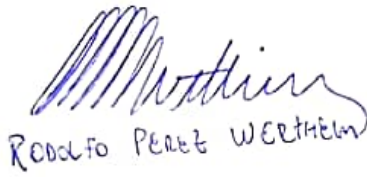 RODOLFO PEREZ WERTHEIM